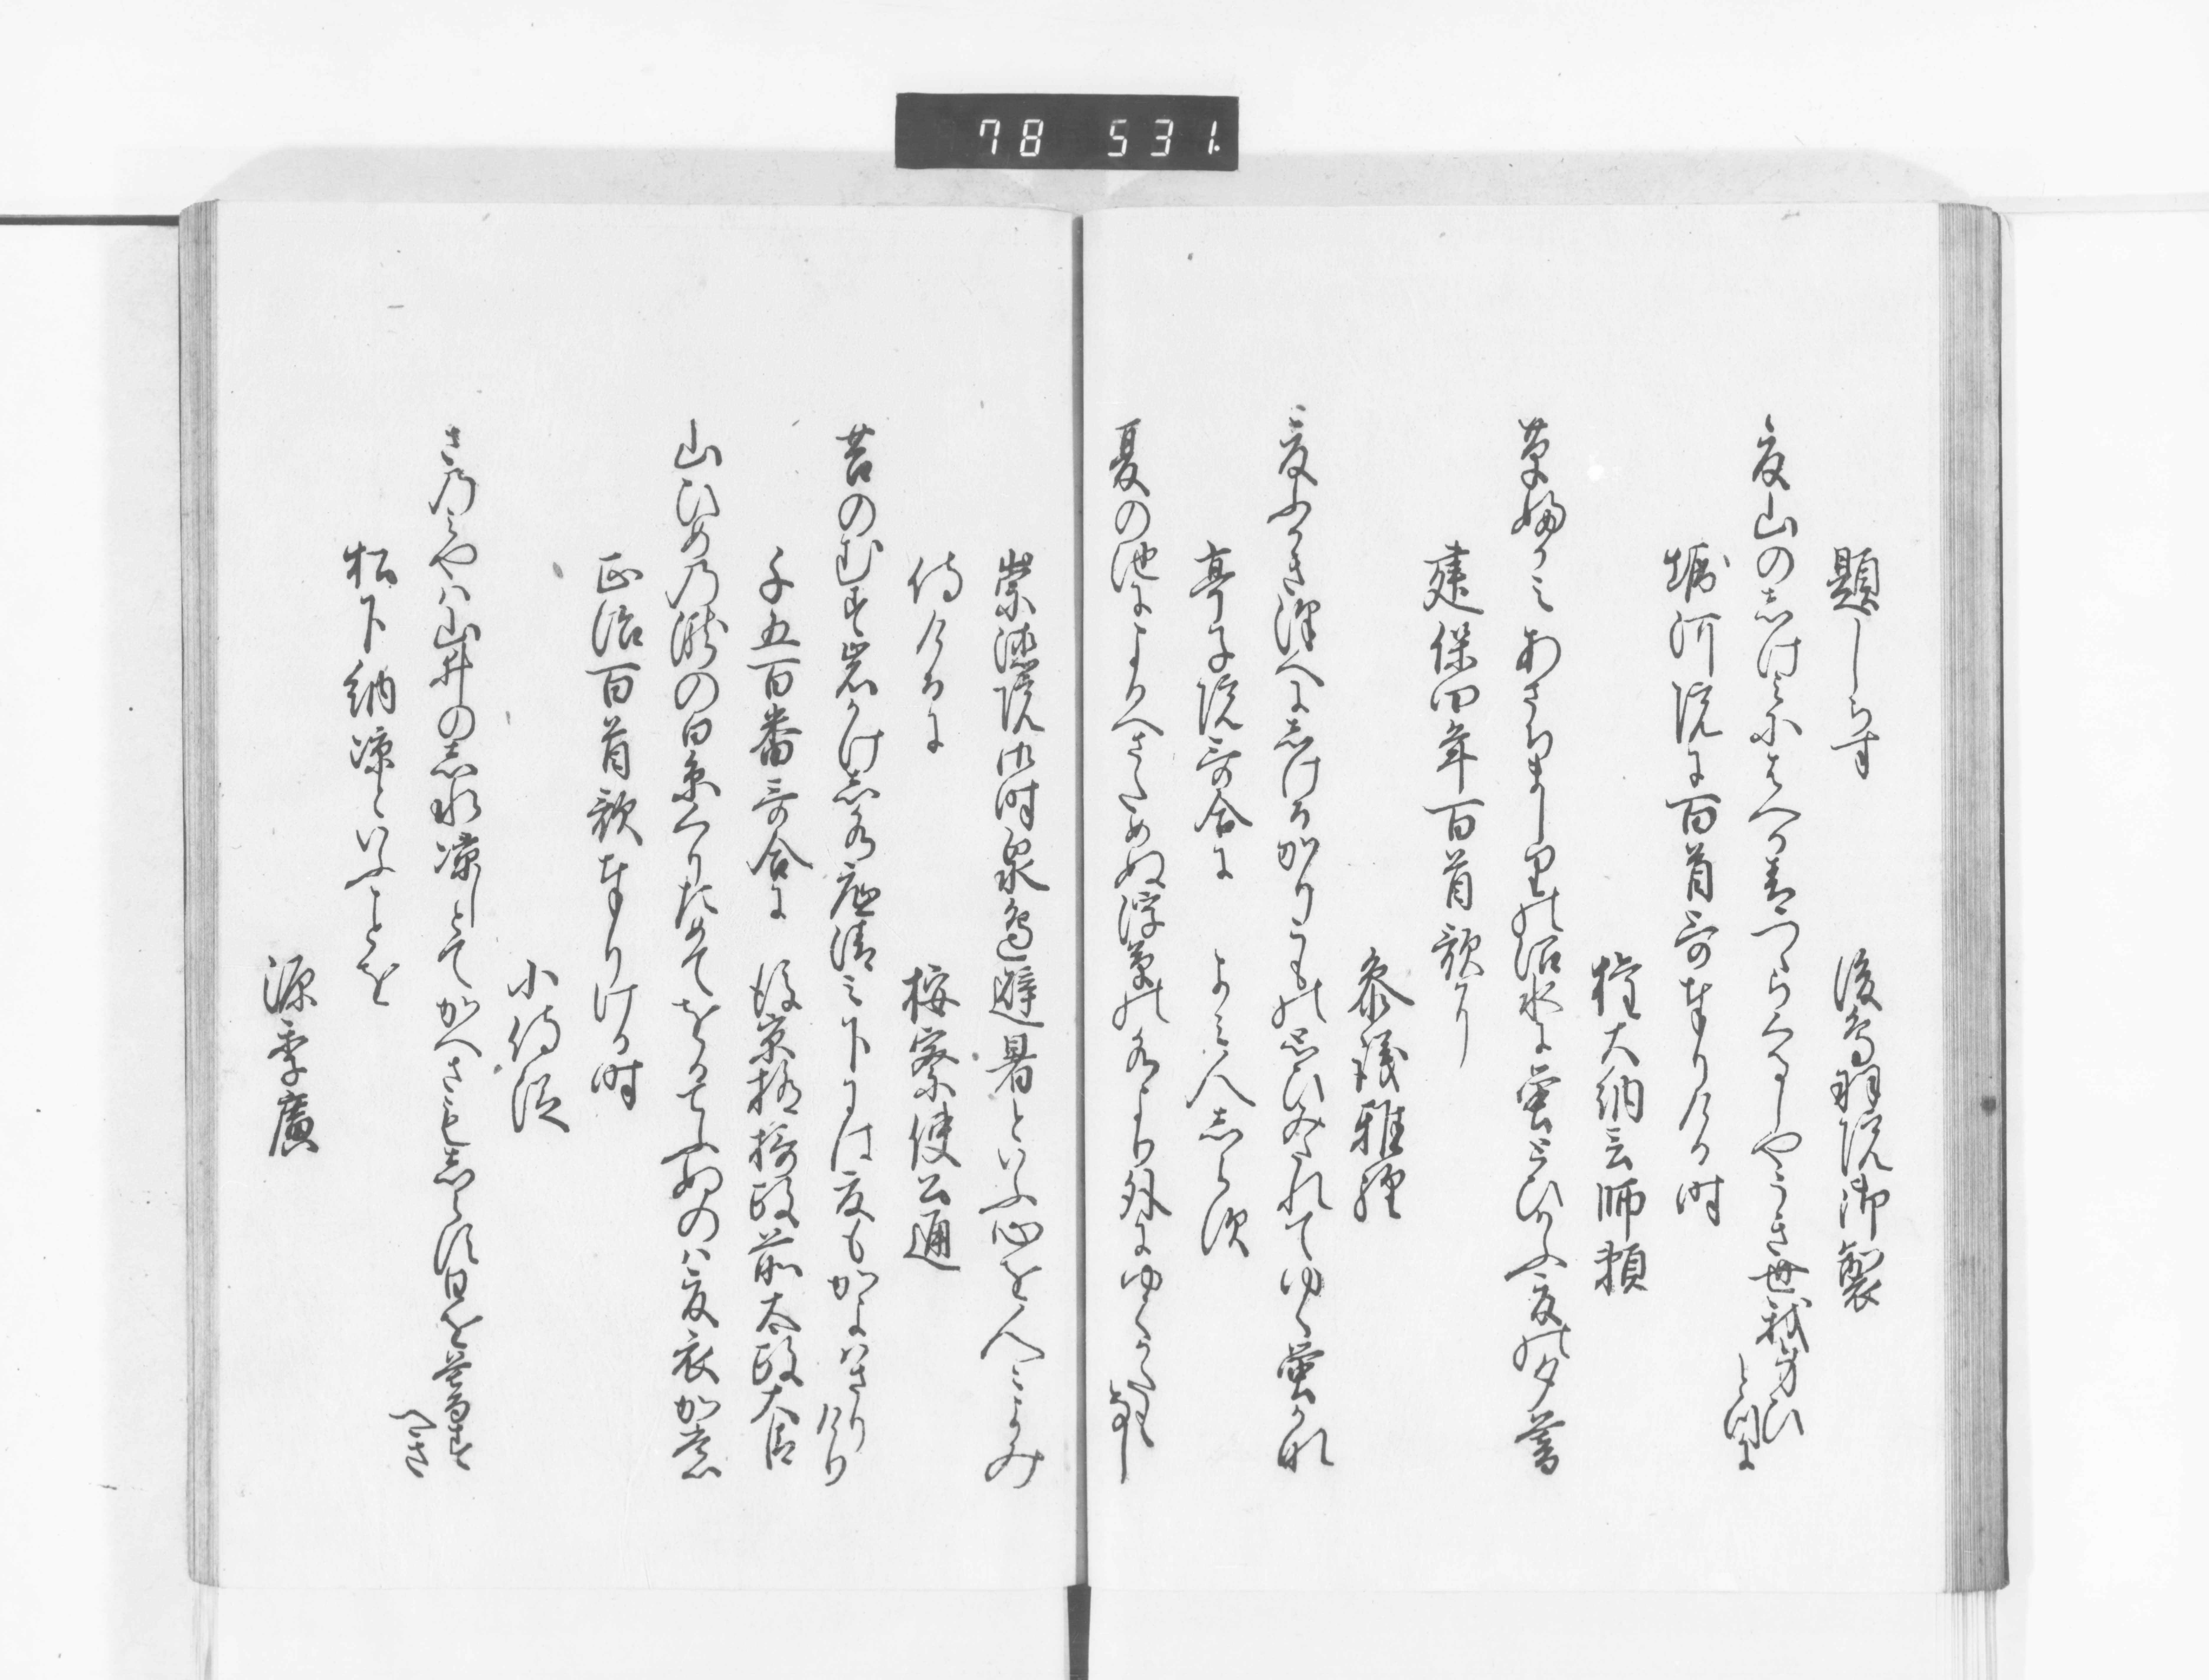 78 531
題しらす　後鳥羽院御製
夏山のしけみにはへる青つゝらくるしやうき世我身ひとつに
堀河院に百首哥奉りける時
権大納言師頼
草ふかみあさちましりの沼水に蛍とひかふ夏の夕暮
建保四年百首歌に
参議雅経
夏ふかき沢へにしけるかりこもの思ひみたれてゆく蛍かな
亭子院哥合に　よみ人しらす
夏の池によるへさためぬ浮草の水より外にゆくかたもなし
崇徳院御時泉辺避暑といふ心を人々よみ
侍けるに　按察使公通
苔のむす岩かけしみつ底清み下には夏もかよはさりけり
千五百番哥合に　後京極摂政前太政大臣
山ひめの滝の白糸くりためてをるてふぬのは夏衣かも
正治百首歌奉りける時
小侍従
さのみやは山井のし水涼しとてかへさもしらす日を暮すへき
松下納涼といふことを
源季廣